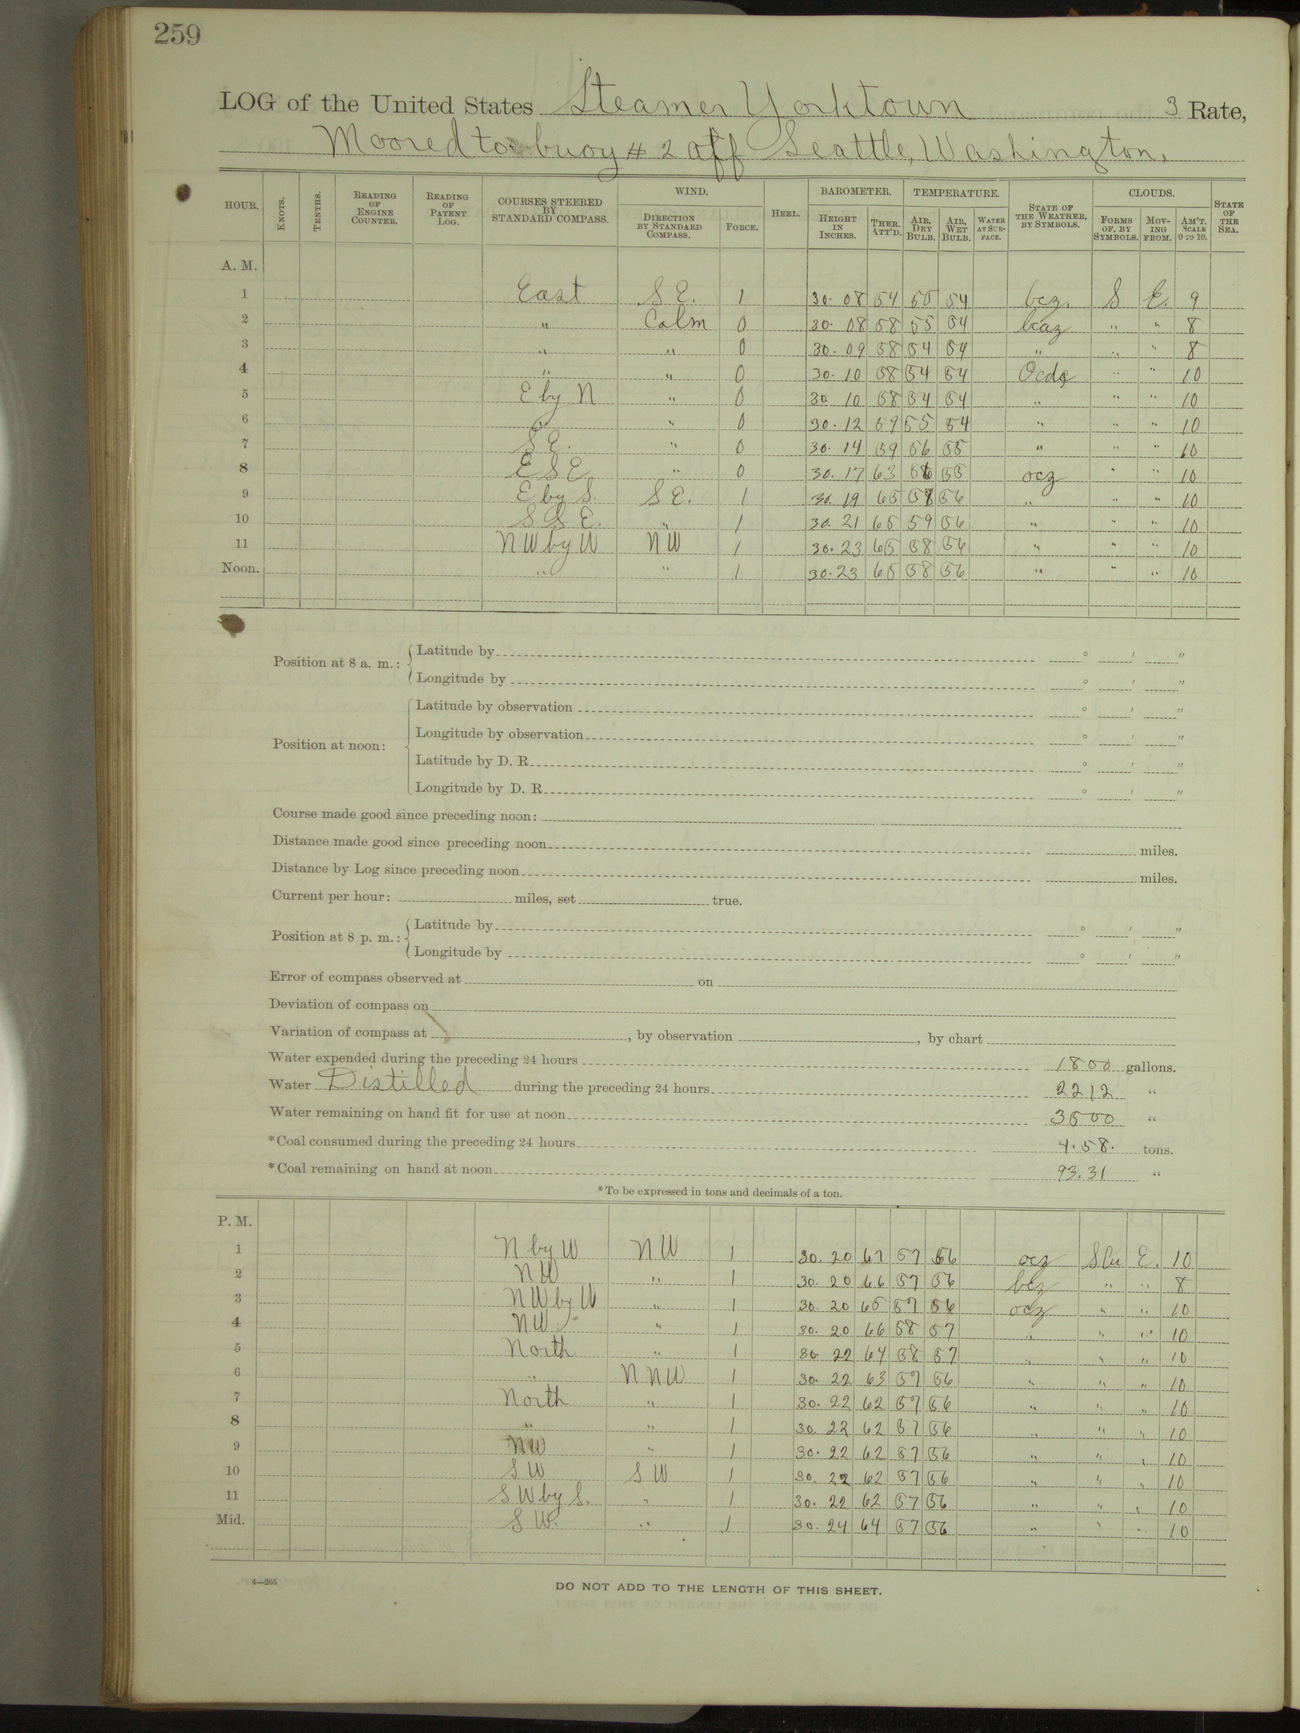 259
LOG of the United States Steamer Yorktown 3 Rate,
Moored to buoy # 2 off Seattle, Washington.
HOUR. KNOTS. TENTHS. READING OF ENGINE COUNTER. READING OF PATENT LOG. COURSES STEERED BY STANDARD COMPASS. WIND. DIRECTION BY STANDARD COMPASS. FORCE. HEEL. BAROMETER. HEIGHT IN INCHES. THER. ATT'D. TEMPERATURE. AIR, DRY BULB. AIR, WET BULB. WATER AT SURFACE. STATE OF THE WEATHER, BY SYMBOLS. CLOUDS. FORMS OF, BY SYMBOLS. MOVING FROM. AM'T. SCALE 0 TO 10. STATE OF THE SEA.
A. M.
1 East S E. 1 30. 08 54 55 54 bcz. S E. 9
2 " Calm 0 30. 08 58 55 54 bcaz " " 8
3 " " 0 30. 09 58 54 54 " " " 8
4 " " 0 30. 10 58 54 54 " " 10
5 E by N " 0 30 10 58 54 54 " " " 10
6 " " 0 30. 12 59 55 54 " " " 10
7 S E. " 0 30. 14 59 56 55 " " " 10
8 E S E. " 0 30. 17 63 56 55 ocz " " 10
9 E by S. S E. 1 30. 19 65 58 56 " " " 10
10 S S E. " 1 30. 21 65 59 56 " " " 10
11 N W by W N W 1 30. 23 65 58 56 " " " 10
Noon. " " 1 30. 23 65 58 56 " " " 10
Position at 8 a. m.: Latitude by ° ' "
Longitude by ° ' "
Position at noon: Latitude by observation ° ' "
Longitude by observation ° ' "
Latitude by D. R. ° ' "
Longitude by D. R. ° ' "
Course made good since preceding noon:
Distance made good since preceding noon miles.
Distance by Log since preceding noon miles.
Current per hour: miles, set true.
Position at 8 p. m.: Latitude by ° ' "
Longitude by ° ' "
Error of compass observed at on
Deviation of compass on
Variation of compass at , by observation , by chart
Water expended during the preceding 24 hours 1800 gallons.
Water Distilled during the preceding 24 hours 2212 "
Water remaining on hand fit for use at noon 3500 "
*Coal consumed during the preceding 24 hours 4.58. tons.
*Coal remaining on hand at noon 93.31 "
*To be expressed in tons and decimals of a ton.
P. M.
1 N by W N W 1 30. 20 67 57 56 ocz S cu E. 10
2 N W " 1 30. 20 66 57 56 bcz " " 8
3 N W by W " 1 30. 20 65 57 56 ocz " " 10
4 N W " 1 30. 20 66 58 57 " " " 10
5 North " 1 30. 22 64 58 57 " " " 10
6 " N N W 1 30. 22 63 57 56 " " " 10
7 North " 1 30. 22 62 57 56 " " " 10
8 " " 1 30. 22 62 57 56 " " " 10
9 N W " 1 30. 22 62 57 56 " " " 10
10 S W S W 1 30. 22 62 57 56 " " " 10
11 S W by S. " 1 30. 22 62 57 56 " " " 10
Mid. S W. " 1 30. 24 64 57 56 " " " 10
4—265
DO NOT ADD TO THE LENGTH OF THIS SHEET.